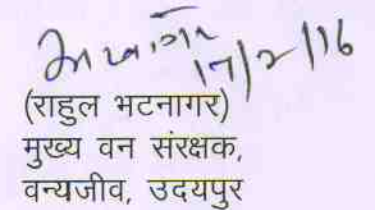 भटनागर
17/2/16
(राहुल भटनागर)
मुख्य वन संरक्षक,
वन्यजीव, उदयपुर